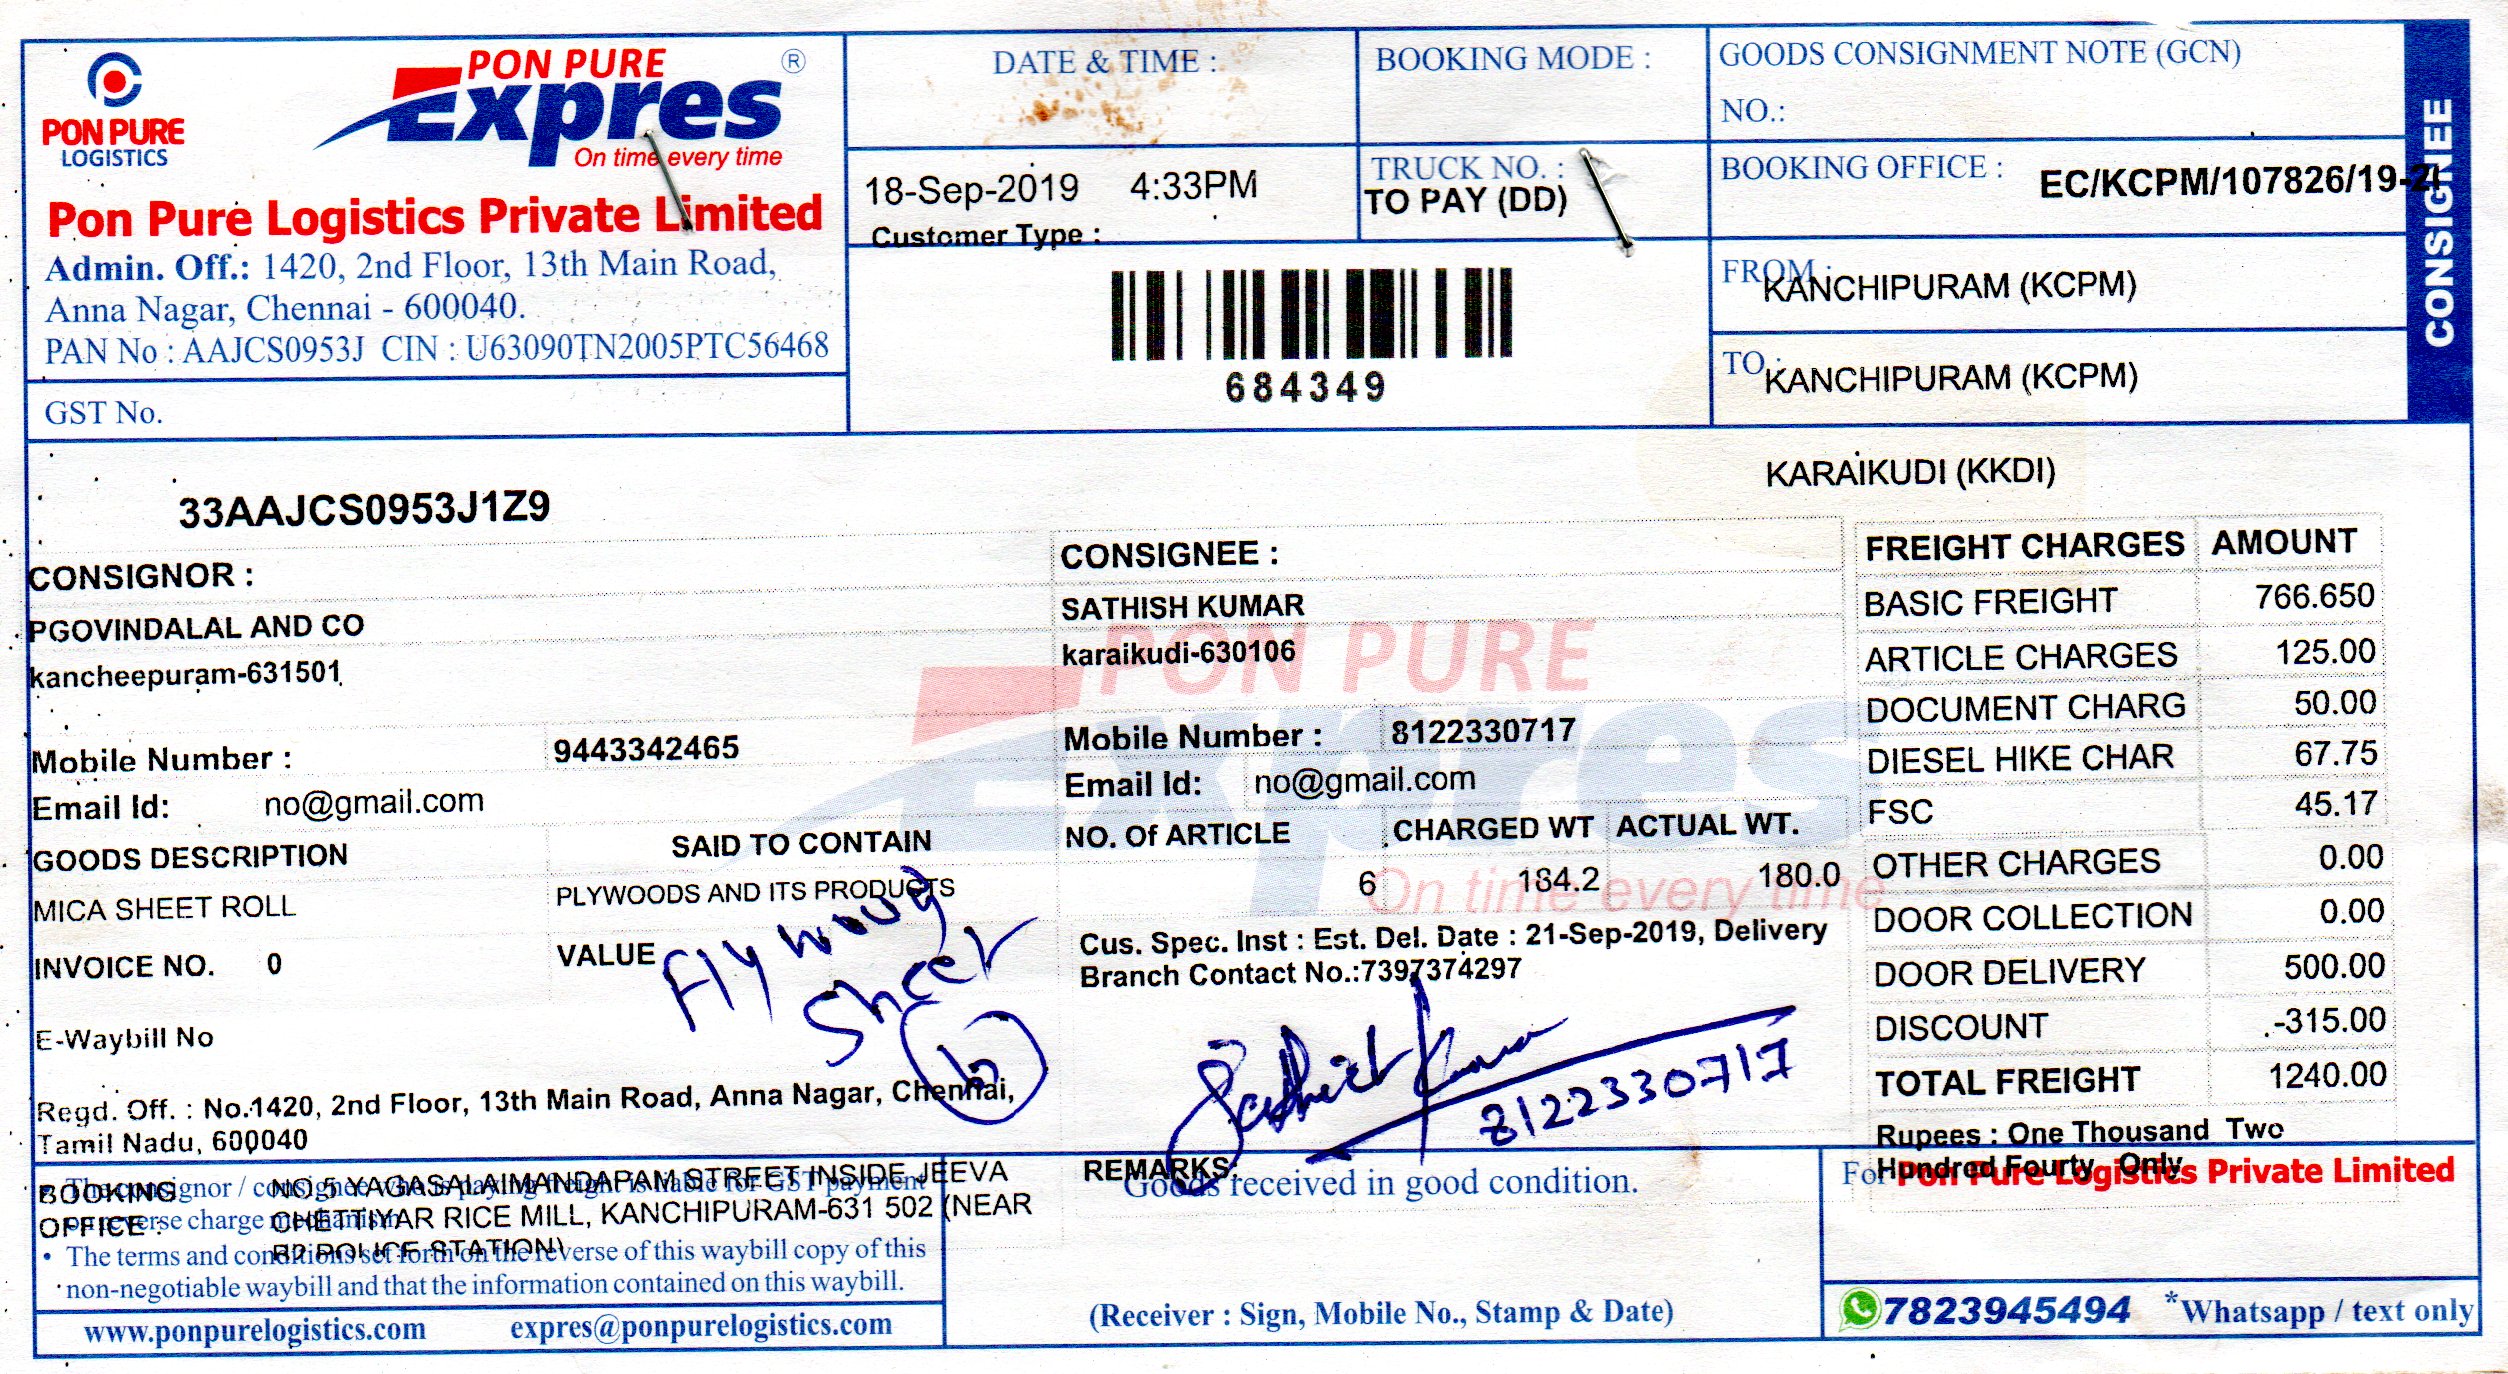 PON PURE
LOGISTICS
PON PURE
Expres ®
On time every time
Pon Pure Logistics Private Limited
Admin. Off.: 1420, 2nd Floor, 13th Main Road,
Anna Nagar, Chennai - 600040.
PAN No : AAJCS0953J CIN : U63090TN2005PTC56468
GST No.
DATE & TIME :
18-Sep-2019 4:33PM
Customer Type :
684349
BOOKING MODE :
TRUCK NO. :
TO PAY (DD)
GOODS CONSIGNMENT NOTE (GCN)
NO.:
BOOKING OFFICE :
EC/KCPM/107826/19-
FROM :
KANCHIPURAM (KCPM)
TO :
KANCHIPURAM (KCPM)
CONSIGNEE
KARAIKUDI (KKDI)
33AAJCS0953J1Z9
CONSIGNOR :
PGOVINDALAL AND CO
kancheepuram-631501
Mobile Number : 9443342465
Email Id: no@gmail.com
GOODS DESCRIPTION SAID TO CONTAIN
MICA SHEET ROLL PLYWOODS AND ITS PRODUCTS
INVOICE NO. 0 VALUE
Sheet
E-Waybill No
Regd. Off. : No.1420, 2nd Floor, 13th Main Road, Anna Nagar, Chennai,
Tamil Nadu, 600040
CONSIGNEE :
SATHISH KUMAR
karaikudi-630106
Mobile Number : 8122330717
Email Id: no@gmail.com
NO. Of ARTICLE CHARGED WT ACTUAL WT.
6 184.2 180.0
Cus. Spec. Inst : Est. Del. Date : 21-Sep-2019, Delivery
Branch Contact No.:7397374297
8122330717
PON PURE
Expres
On time every time
FREIGHT CHARGES AMOUNT
BASIC FREIGHT 766.650
ARTICLE CHARGES 125.00
DOCUMENT CHARG 50.00
DIESEL HIKE CHAR 67.75
FSC 45.17
OTHER CHARGES 0.00
DOOR COLLECTION 0.00
DOOR DELIVERY 500.00
DISCOUNT -315.00
TOTAL FREIGHT 1240.00
Rupees : One Thousand Two
Hundred Fourty Only
BOOKING
OFFICE :
NO 5 YAGASALAIMANDAPAM STREET INSIDE JEEVA
CHETTIYAR RICE MILL, KANCHIPURAM-631 502 (NEAR
B2 POLICE STATION)
• The consignor / consignee who is paying freight is liable for GST payment
on reverse charge mechanism
• The terms and conditions set forth on the reverse of this waybill copy of this
non-negotiable waybill and that the information contained on this waybill.
www.ponpurelogistics.com expres@ponpurelogistics.com
REMARKS:
Goods received in good condition.
(Receiver : Sign, Mobile No., Stamp & Date)
For Pon Pure Logistics Private Limited
7823945494 *Whatsapp / text only